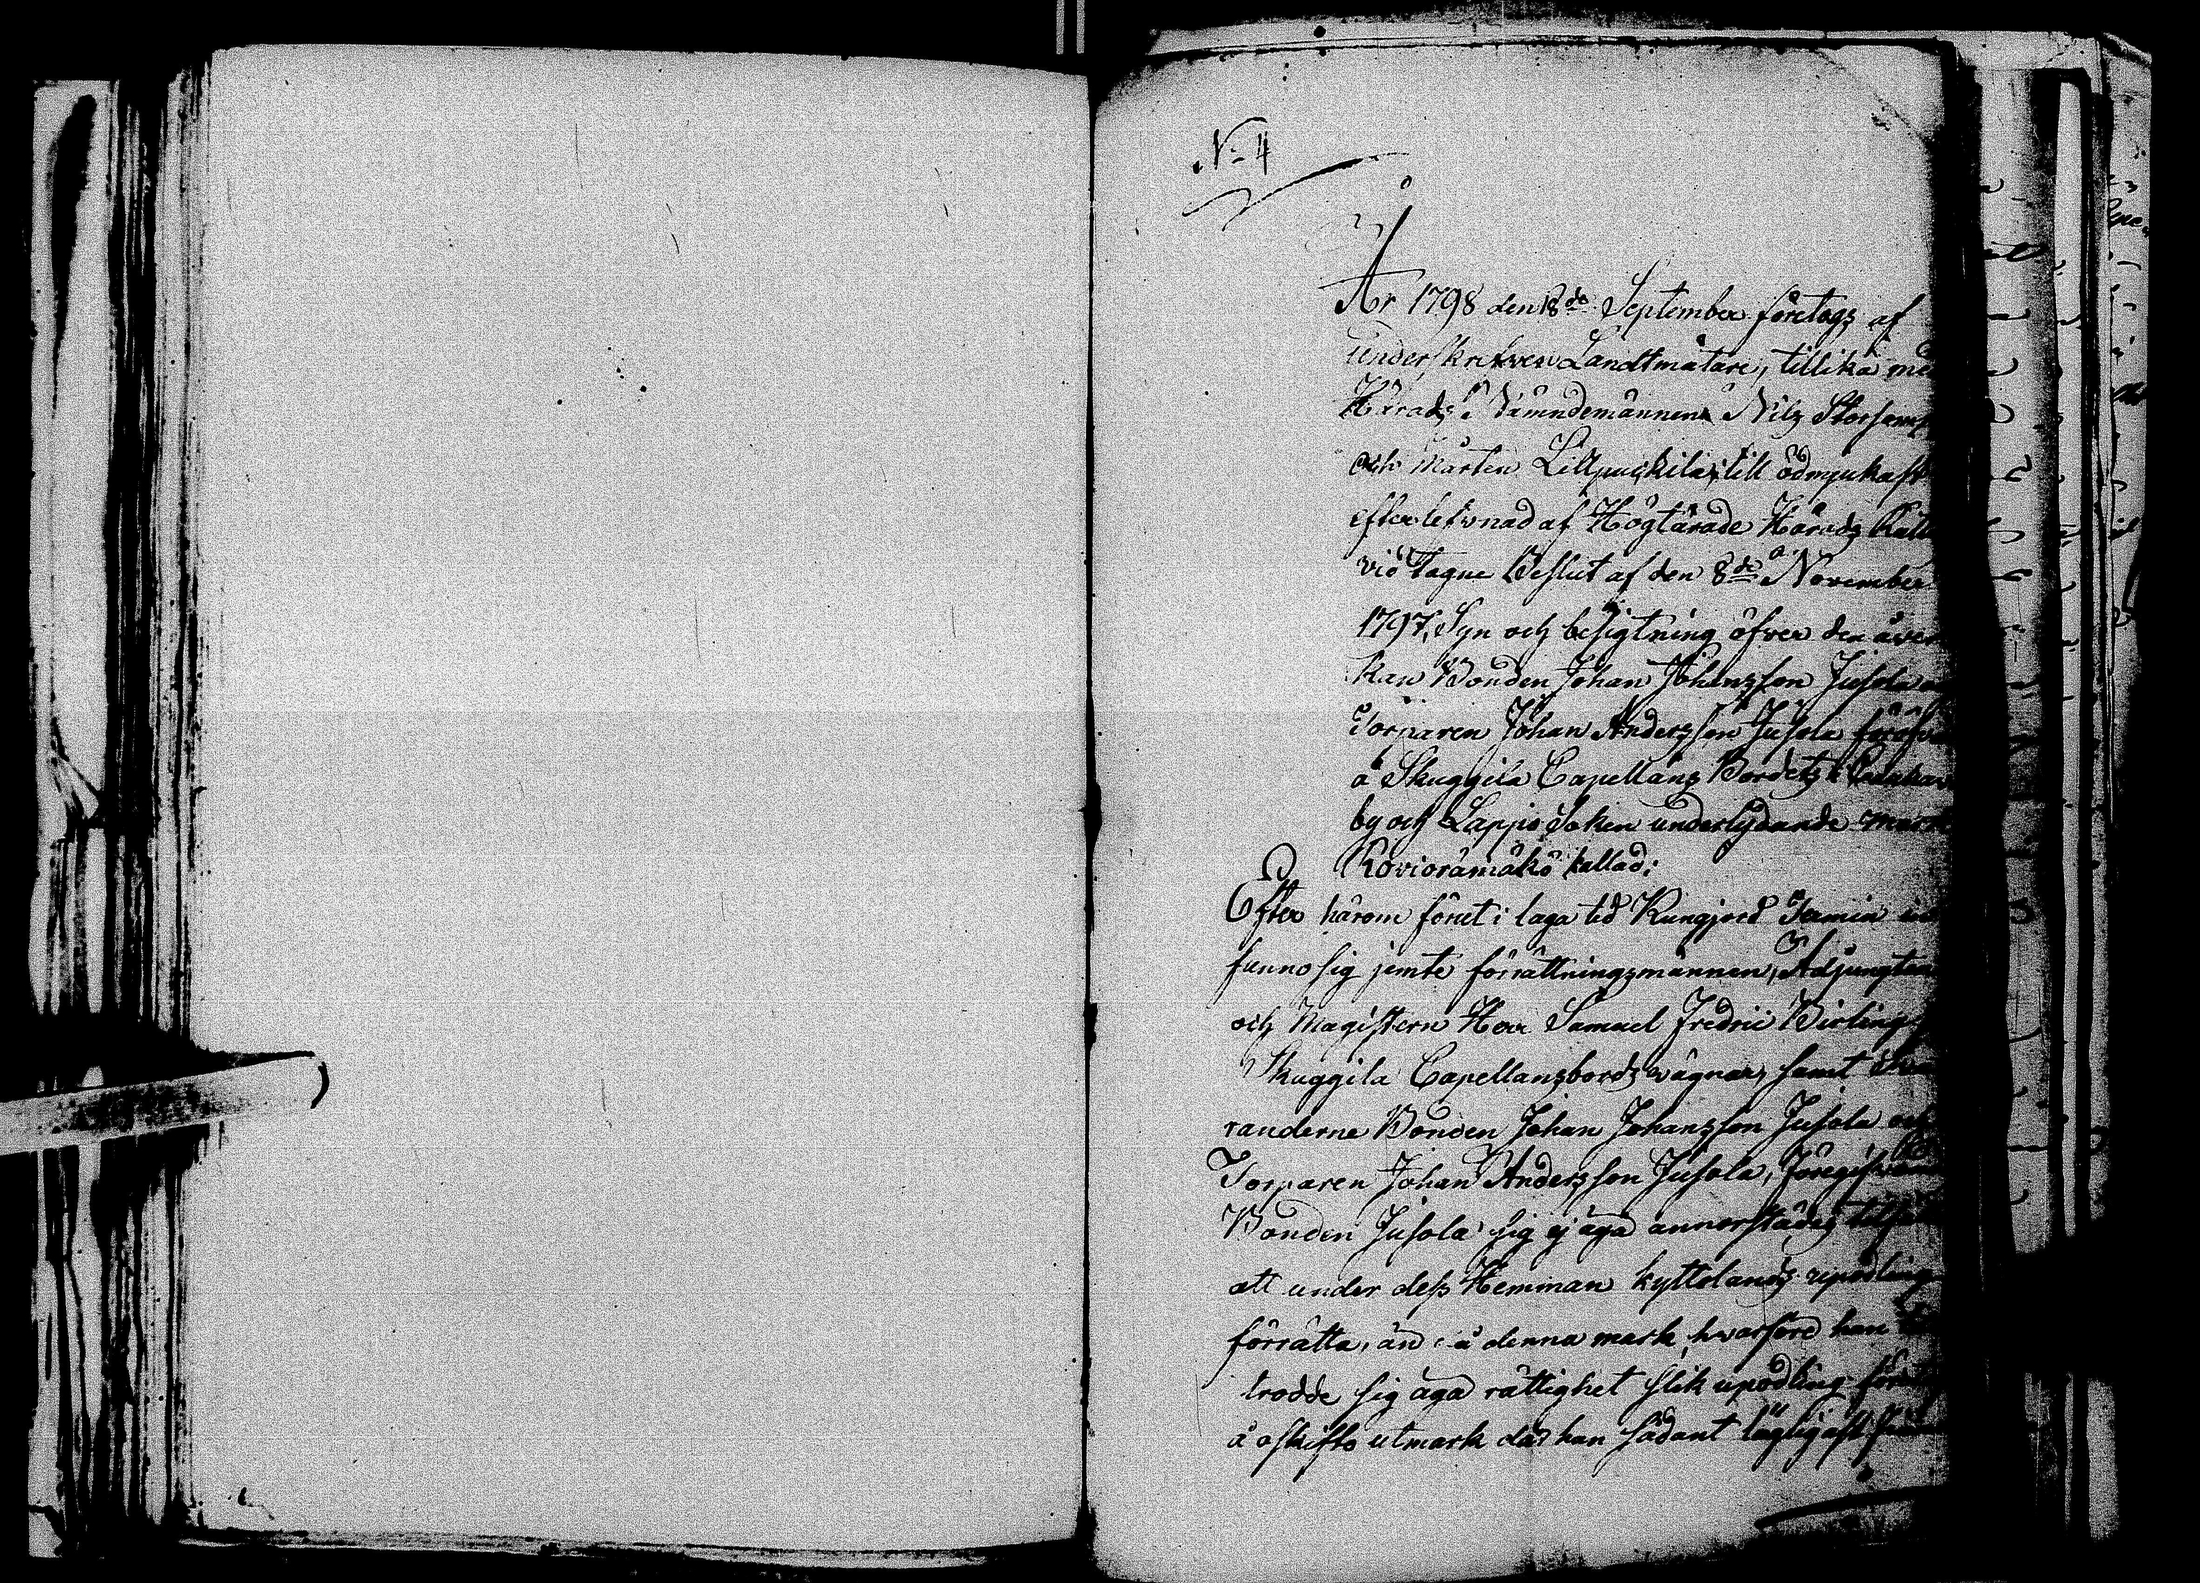 No 4
År 1798 den 18de September företogs af
underskrefven Landtmätare, tillika med
Härads Nämndemännen Nils Storsamp
och Mårten Lillpuckila, till ödmjukast
efterlefvnad af Högtärade Härads Rätt
vid tagne Beslut af den 8de November
1797, Syn och besigtning öfver den åver
kan Bonden Johan Johansson Jusola
Torparen Johan Andersson Jusola föröfv
å Skuggila Capellans Bordets
by och Lappo Soken underlydande mark
Rovioramäkö kallad;
Efter härom förut i laga tid Kungjord Termin in
funno sig jemte förrättningsmännen, Adjungten
och Magistern Herr Samuel Fredric Birling
Skuggila Capellansbords vägnar, samt
randerne Bonden Johan Johansson Jusola och
Torparen Johan Andersson Jusola, Föregifvande
Bonden Jusola sig ej äga annorstädes
att under dess Hemman kyttelands upodling
förrätta, än å denna mark, hvarföre han
trodde sig äga rättighet slik upodling
å oskifto utmark där han sådant lägligast